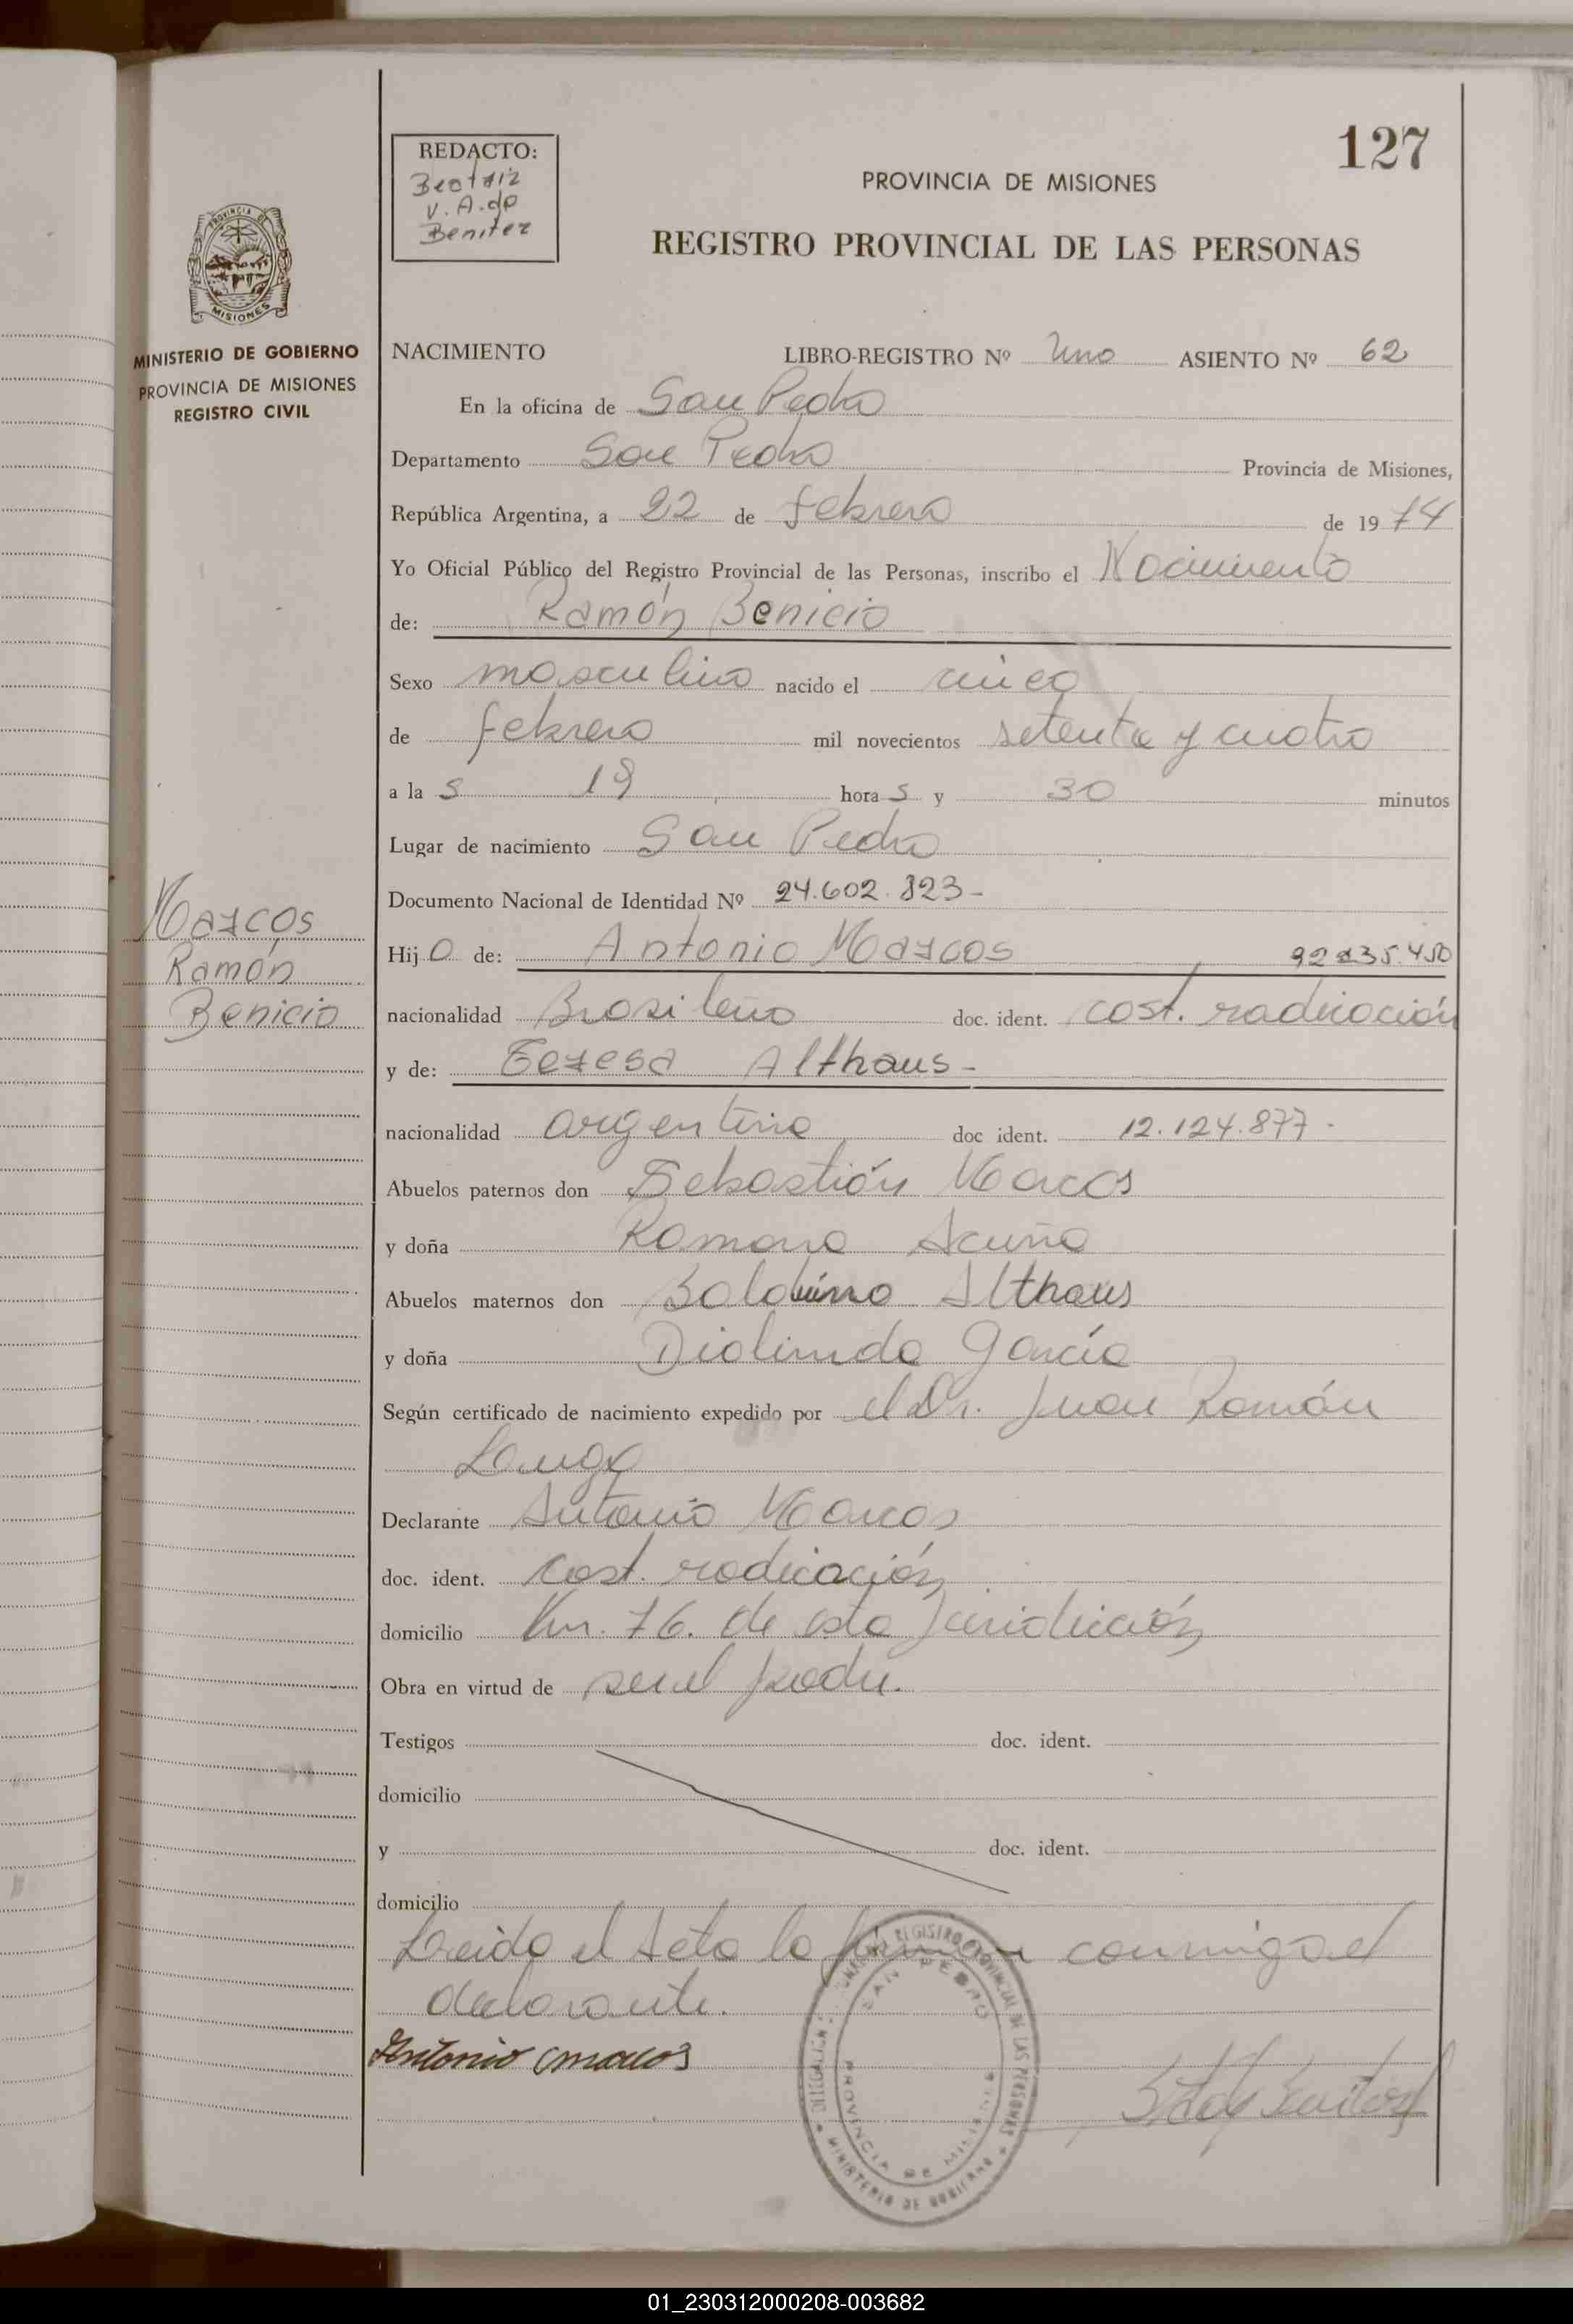 127
REDACTO:
Beatriz
V. A. de
Benitez
PROVINCIA DE MISIONES
REGISTRO PROVINCIAL DE LAS PERSONAS
PROVINCIA DE
MISIONES
MINISTERIO DE GOBIERNO
PROVINCIA DE MISIONES
REGISTRO CIVIL
NACIMIENTO LIBRO-REGISTRO Nº Uno ASIENTO Nº 62
En la oficina de San Pedro
Departamento San Pedro Provincia de Misiones,
República Argentina, a 22 de febrero de 1974
Yo Oficial Público del Registro Provincial de las Personas, inscribo el Nacimiento
de: Ramón Benicio
Sexo masculino nacido el cinco
de febrero mil novecientos setenta y cuatro
a la s 19 hora s y 30 minutos
Lugar de nacimiento San Pedro
Documento Nacional de Identidad Nº 24.602.823-
Marcos
Ramón
Benicio
Hijo de: Antonio Marcos
nacionalidad Brasileño doc. ident. cost. radicación
y de: Teresa Althaus-
nacionalidad argentina doc ident. 12.124.877-
Abuelos paternos don Sebastián Marcos
y doña Ramona Acuña
Abuelos maternos don Balduino Althaus
y doña Diolinda García
Según certificado de nacimiento expedido por el Dr. Juan Ramón
Lauge
Declarante Antonio Marcos
doc. ident. cost. radicación
domicilio Km. 76. de esta juridición
Obra en virtud de ser el padre.
Testigos doc. ident.
domicilio
y doc. ident.
domicilio
Leido el Acta la firma conmigo el
declarante.
Antonio Marcos
DELEGACIÓN REGISTRO PROVINCIAL DE LAS PERSONAS
MINISTERIO DE GOBIERNO
SAN PEDRO
PROVINCIA DE MISIONES
01_230312000208-003682